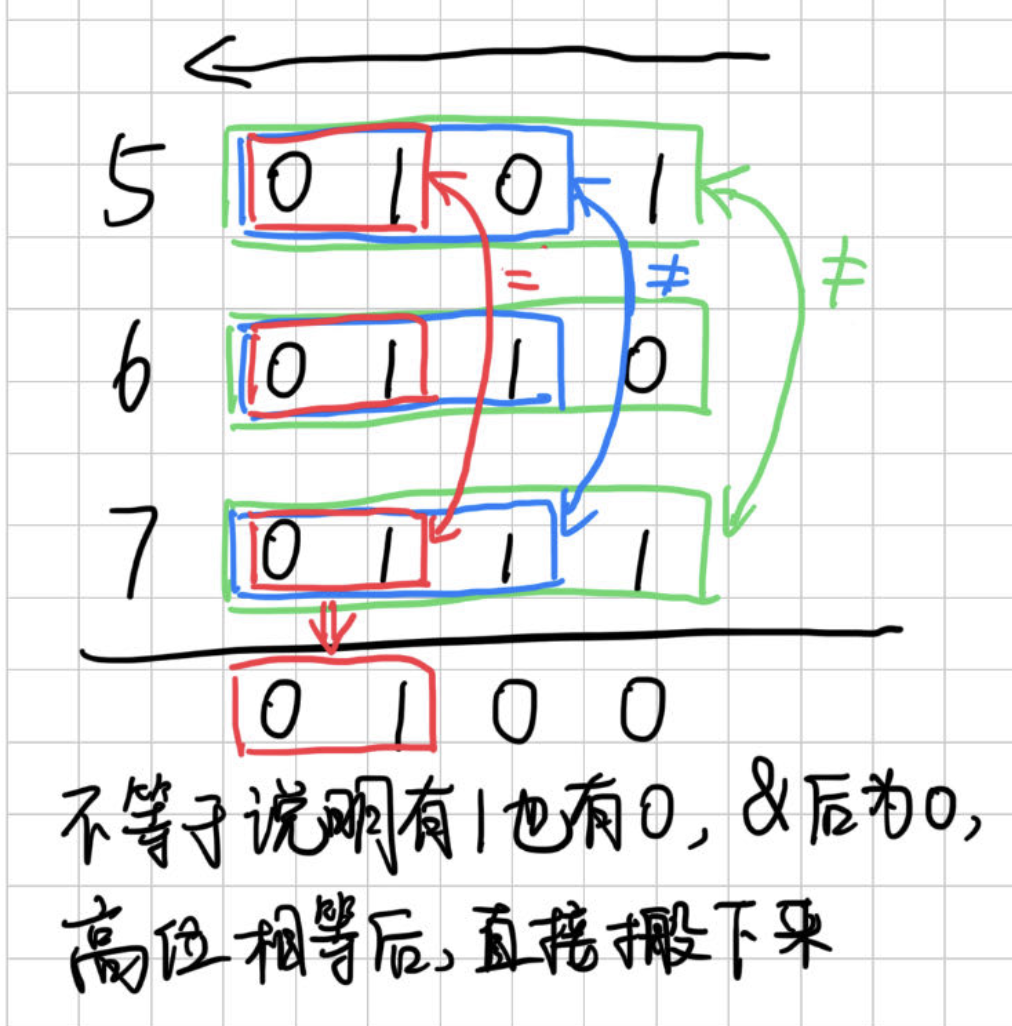 5 0 1 0 1
= ≠ ≠
6 0 1 1 0
7 0 1 1 1
0 1 0 0
不等于说明有1也有0,&后为0,
高位相等后,直接搬下来